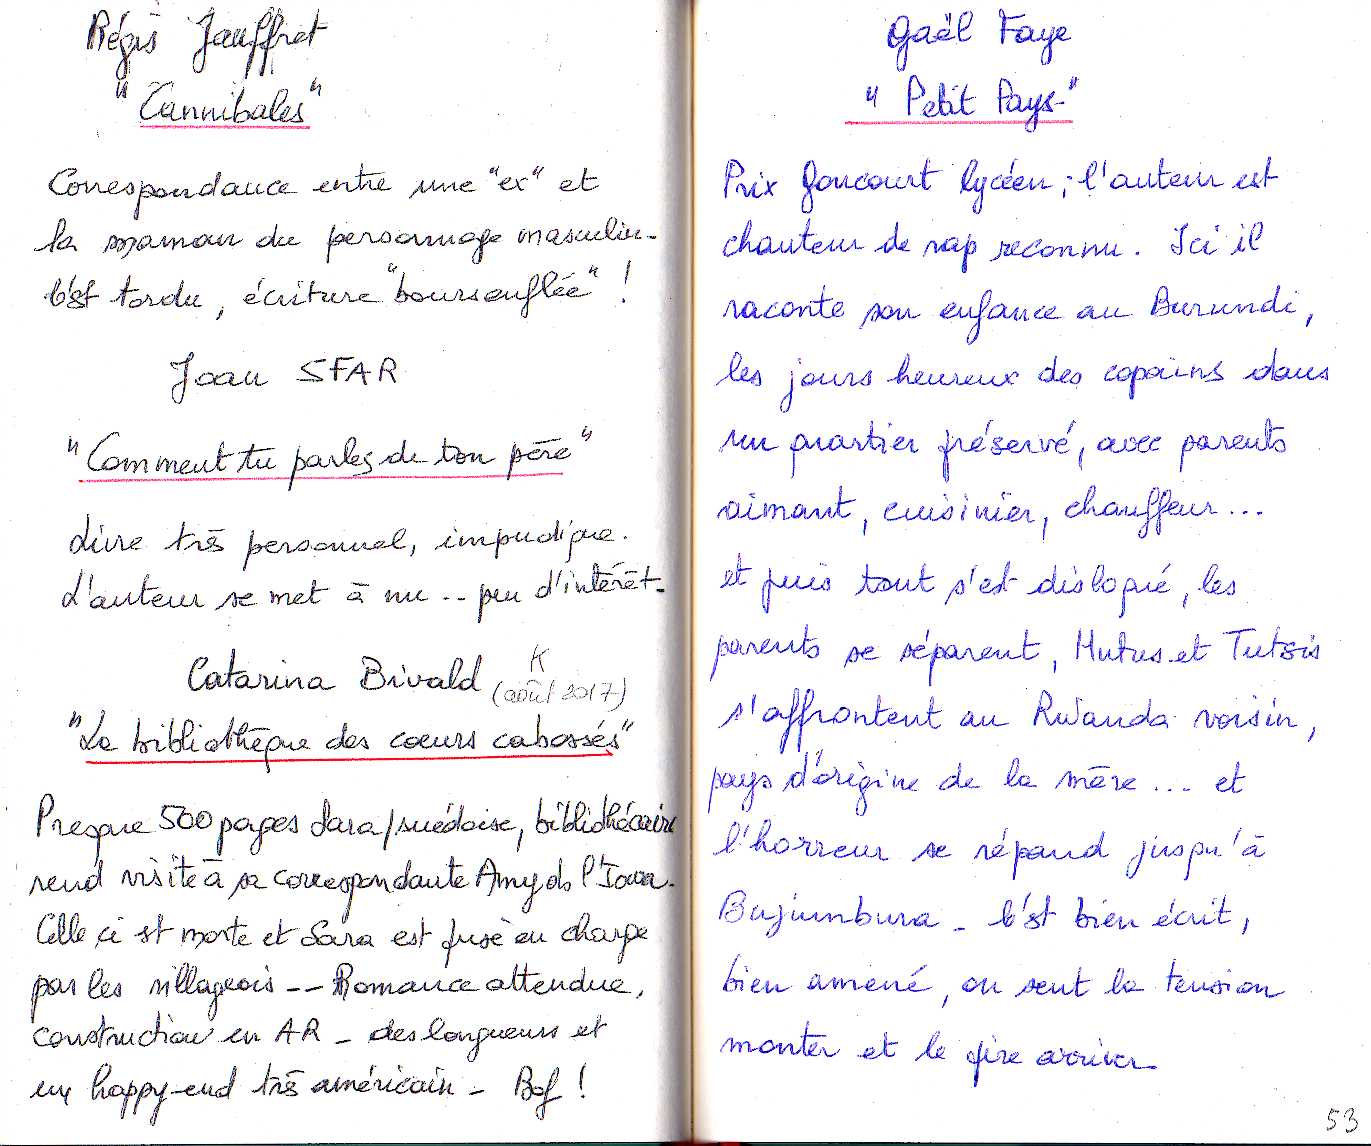 Régis Jauffret
"Cannibales"
Correspondance entre une "ex" et
la maman du personnage masculin -
C'est tordu, écriture "boursouflée" !
Joan SFAR
"Comment tu parles de ton père"
Livre très personnel, impudique.
L'auteur se met à nu -- peu d'intérêt -
Catarina Bivald K
(août 2017)
"La bibliothèque des coeurs cabossés"
Presque 500 pages Sara/suédoise, bibliothécaire
rend visite à sa correspondante Amy ds l'Iowa.
Celle ci est morte et Sara est prise en charge
par les villageois -- Romance attendue,
construction en AR - des longueurs et
un happy-end très américain - Bof !
Gaël Faye
"Petit Pays"
Prix Goncourt lycéen ; l'auteur est
chanteur de rap reconnu. Ici il
raconte son enfance au Burundi,
les jours heureux des copains dans
un quartier préservé, avec parents
aimant, cuisinier, chauffeur ...
et puis tout s'est disloqué, les
parents se séparent, Hutus et Tutsis
s'affrontent au Rwanda voisin,
pays d'origine de la mère ... et
l'horreur se répand jusqu'à
Bujumbura - C'est bien écrit,
bien amené, on sent la tension
monter et le pire arriver -
53